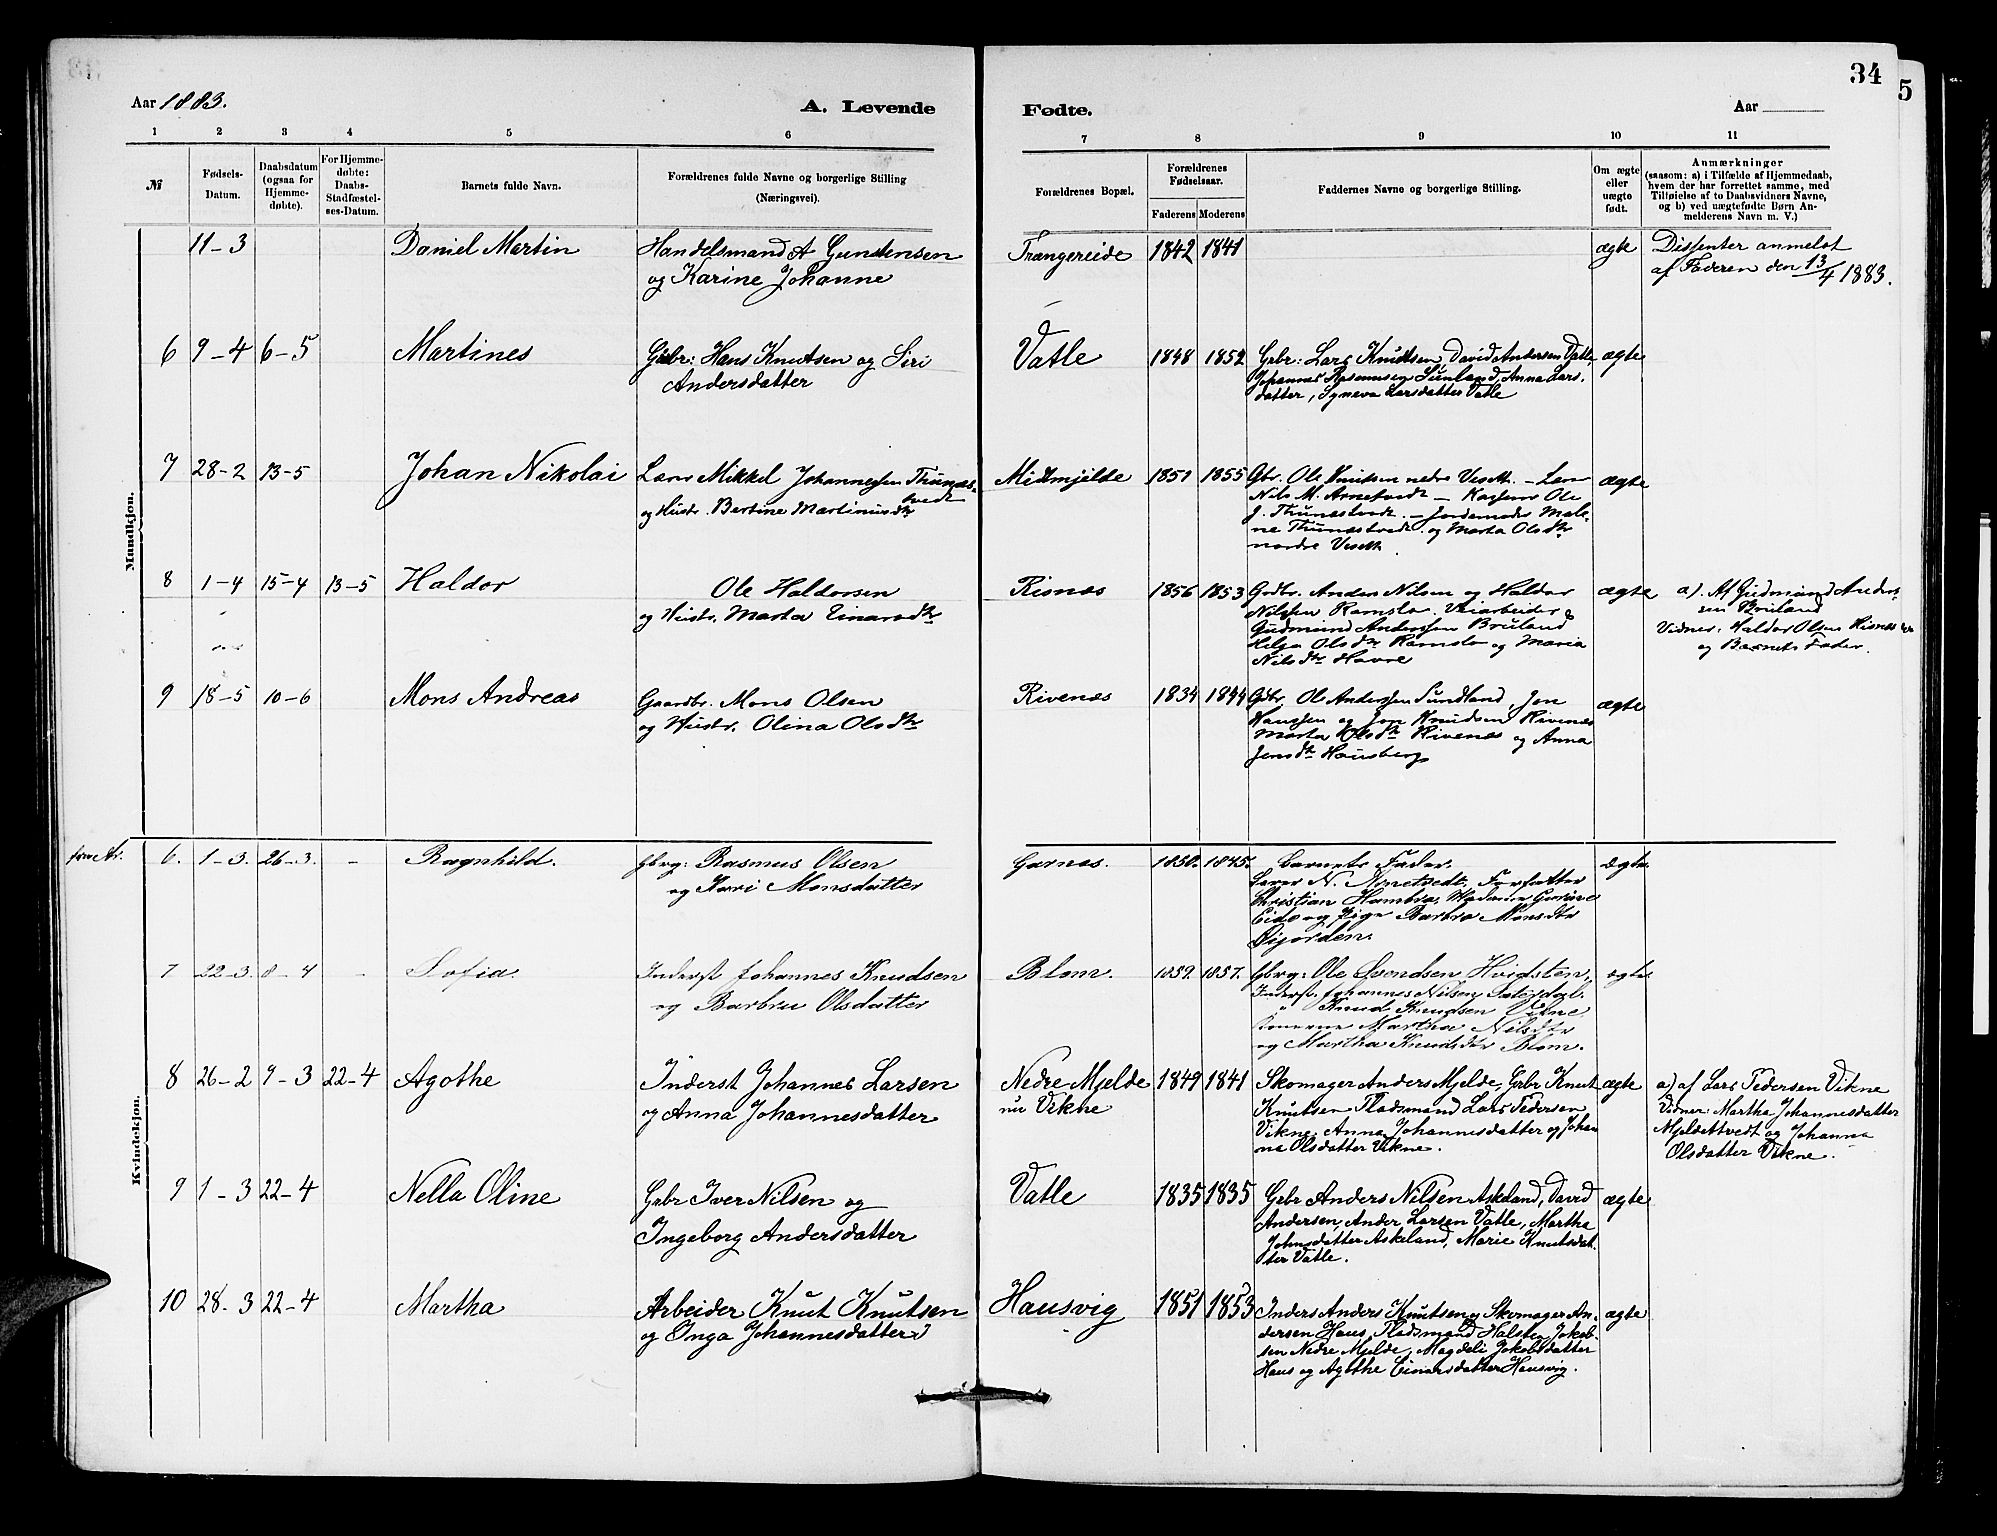 34
5
Aar 1883.
A. Levende
Fødte.
Aar
1 2 3 4 5 6 7 8 9 10 11
№
Fødsels-
Datum.
Daabsdatum
(ogsaa for
Hjemme-
døbte).
For Hjemme-
døbte:
Daabs-
Stadfæstel-
ses-Datum.
Barnets fulde Navn.
Forældrenes fulde Navne og borgerlige Stilling
(Næringsvei).
Forældrenes Bopæl.
Forældrenes
Fødselsaar.
Faderens Moderens
Faddernes Navne og borgerlige Stilling.
Om ægte
eller
uægte
født.
Anmærkninger
(saasom: a) i Tilfælde af Hjemmedaab,
hvem der har forrettet samme, med
Tilføielse af to Daabsvidners Navne,
og b) ved uægtefødte Børn An-
melderens Navn m. V.)
Mandkjøn.
11-3 Daniel Martin Handelsmand A Gundersen
og Karine Johanne
Trængereide 1842 1841 ægte
Dissenter anmeldt
af Faderen den 13/4 1883.
6 9-4 6-5 Martines Gbr: Hans Knutsen og Siri
Andersdatter
Vatle 1848 1852 Grbr: Lars Knudtsen, David Andersen Vatle, ægte
Johannes Rasmussen Sunland, Anna Lars-
datter, Synneva Larsdatter Vatle
7 28-2 13-5 Johan Nikolai Lærer Mikkel Johannessen Thunæs-
tvedt
og Hustr. Bertine Martinusdtr
Midmjelde 1851 1855 Gbr. Ole Knutsen nedre Veseth - Lærer ægte
Nils M. Arnetvedt - Ole
J. Thunæstvedt - Jordemoder Male-
ne Thunæstvedt og Marta Olsdtr
nordre Veseth
8 1-4 15-4 13-5 Haldor Ole Haldorsen
og Hustr. Marta Einarsdtr
Risnæs 1856 1853 Grdbr. Anders Nilsen og Haldor ægte
Nilssen Ramslo. Veiarbeider
Gudmund Anderssen Bruland
Helga Olsdtr Ramslo og Maria
Nilsdtr Havre
a). Af Gudmund Anders-
sen Bruland
Vidner: Haldor Olsen Risnæs
og Barnets Fader.
9 18-5 10-6 Mons Andreas Gaardbr. Mons Olsen
og Hustr. Olina Olsdtr
Rivenæs 1834 1844 Gdbr. Ole Anderssen Sundland, Jon ægte
Hanssen og Jon Knudsen Rivenæs
Marta Olsdtr Rivenæs og Anna
Jensdtr Hausberg
Kvindekjøn.
6. 1-3. 26-3. - Ragnhild. Gbrg: Rasmus Olsen
og Kari Monsdatter
Garnæs. 1850. 1845. Barnets Fader. ægte.
Lærer N. Arnetvedt. Forfatter
Christian Hambro, Madame
Eide og Pige Barbro Monsdtr
Øijorden.
7 22-3. 8-4 - Sofia Inderst Johannes Knudsen
og Barbru Olsdatter
Blom. 1859. 1857. Gbrg: Ole Svendsen Hvidsten, ægte
Inderst. Johannes Nilsen
" Knud Knudsen Vikne
Konerne Martha Nilsdtr
og Martha Knudsdtr Blom.
8 26-2 9-3 22-4 Agothe Inderst Johannes Larsen
og Anna Johannesdatter
Nedre Mjelde 1849 1841 Skomager Anders Mjelde, Grbr Knut ægte
nu Vikne
Knutsen Pladsmand Lars Pedersen
Vikne, Anna Johannesdatter og Johan
na Olsdatter Vikne.
a) af Lars Pedersen Vikne
Vidner: Martha Johannesdatter
Mjeldetvedt og Johanna
Olsdatter Vikne.
9 1-3 22-4 Nella Oline Grbr Iver Nilsen og
Ingeborg Andersdatter
Vatle 1835 1835 Grbr Anders Nilsen Askeland, David ægte
Andersen, Ander Larsen Vatle, Martha
Johnsdatter Askeland, Marie Knutsdat-
ter Vatle.
10 28-3 22-4 Martha Arbeider Knut Knutsen
og Onga Johannesdatter
Hausvig 1851 1853 Inders Anders Knutsen, Skomager An- ægte
dersen Haus, Pladsmand Halsten Jokob-
sen Nedre Mjelde, Magdeli Jokobsdatter
Haus og Agothe Einarsdatter Hausvig.